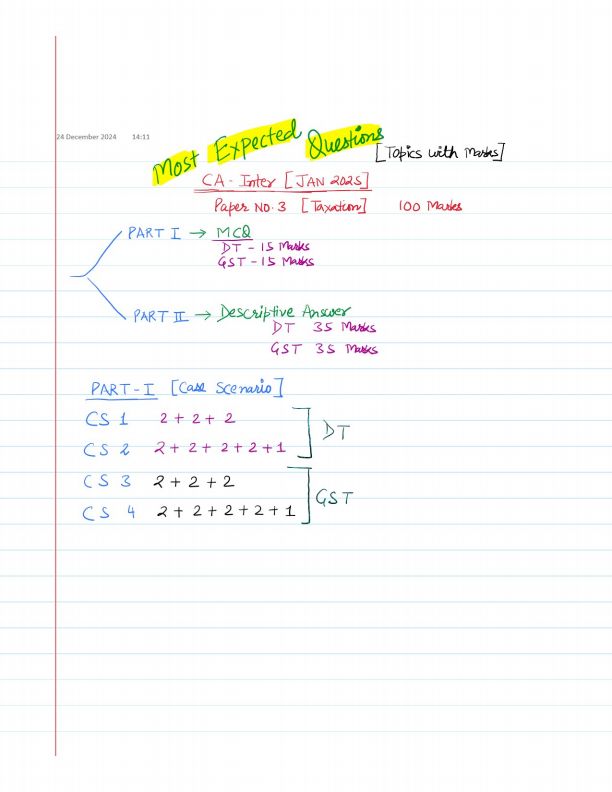 24 December 2024 14:11
Most Expected Questions [Topics with Marks]
CA - Inter [JAN 2025]
Paper NO. 3 [Taxation] 100 Marks
PART I → MCQ
DT - 15 Marks
GST - 15 Marks
PART II → Descriptive Answer
DT 35 Marks
GST 35 Marks
PART - I [Case Scenario]
CS 1 2 + 2 + 2
CS 2 2 + 2 + 2 + 2 + 1
DT
CS 3 2 + 2 + 2
CS 4 2 + 2 + 2 + 2 + 1
GST